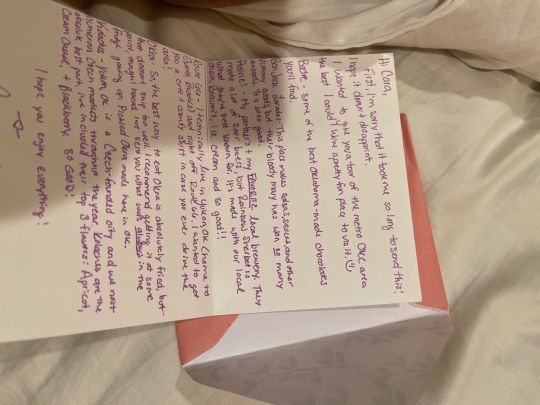 Hi Cora,
First, I'm sorry that it took me so long to send this!
I hope it doesn't disappoint.
I wanted to give you a tour of the metro OKC area
the best I could! We're a pretty fun place to visit. :)
Bedré - some of the best Oklahoma-made chocolates
you'll find.
This place makes salsas, sauces, and other
yummy goods, but their bloody mary has won so many
awards. It's sooo good.
My partner's + my FAVORITE local brewery. They
make a lot of sour beers, but Rainbow Sherbet is
what they're best known for. It's made with our local
ice cream and so good!!
Route 66 - I technically live in Yukon, OK (home to
Garth Brooks) and right off Route 66. I wanted to get
you a cute + county gift in case you ever drive the
area.
Okra - So, the best way to eat Okra is absolutely fried, but
that doesn't ship too well. I recommend getting it at some
point, maybe
fridge growing up. Pickled Okra made here in OK.
Kolaches - Yukon, OK is a Czech-founded city and we host
numerous Czech markets throughout the year. Kolaches are the
absolute best part. I've included their top 3 flavors: Apricot,
Cream Cheese, + Blackberry. SO GOOD!
I hope you enjoy everything!